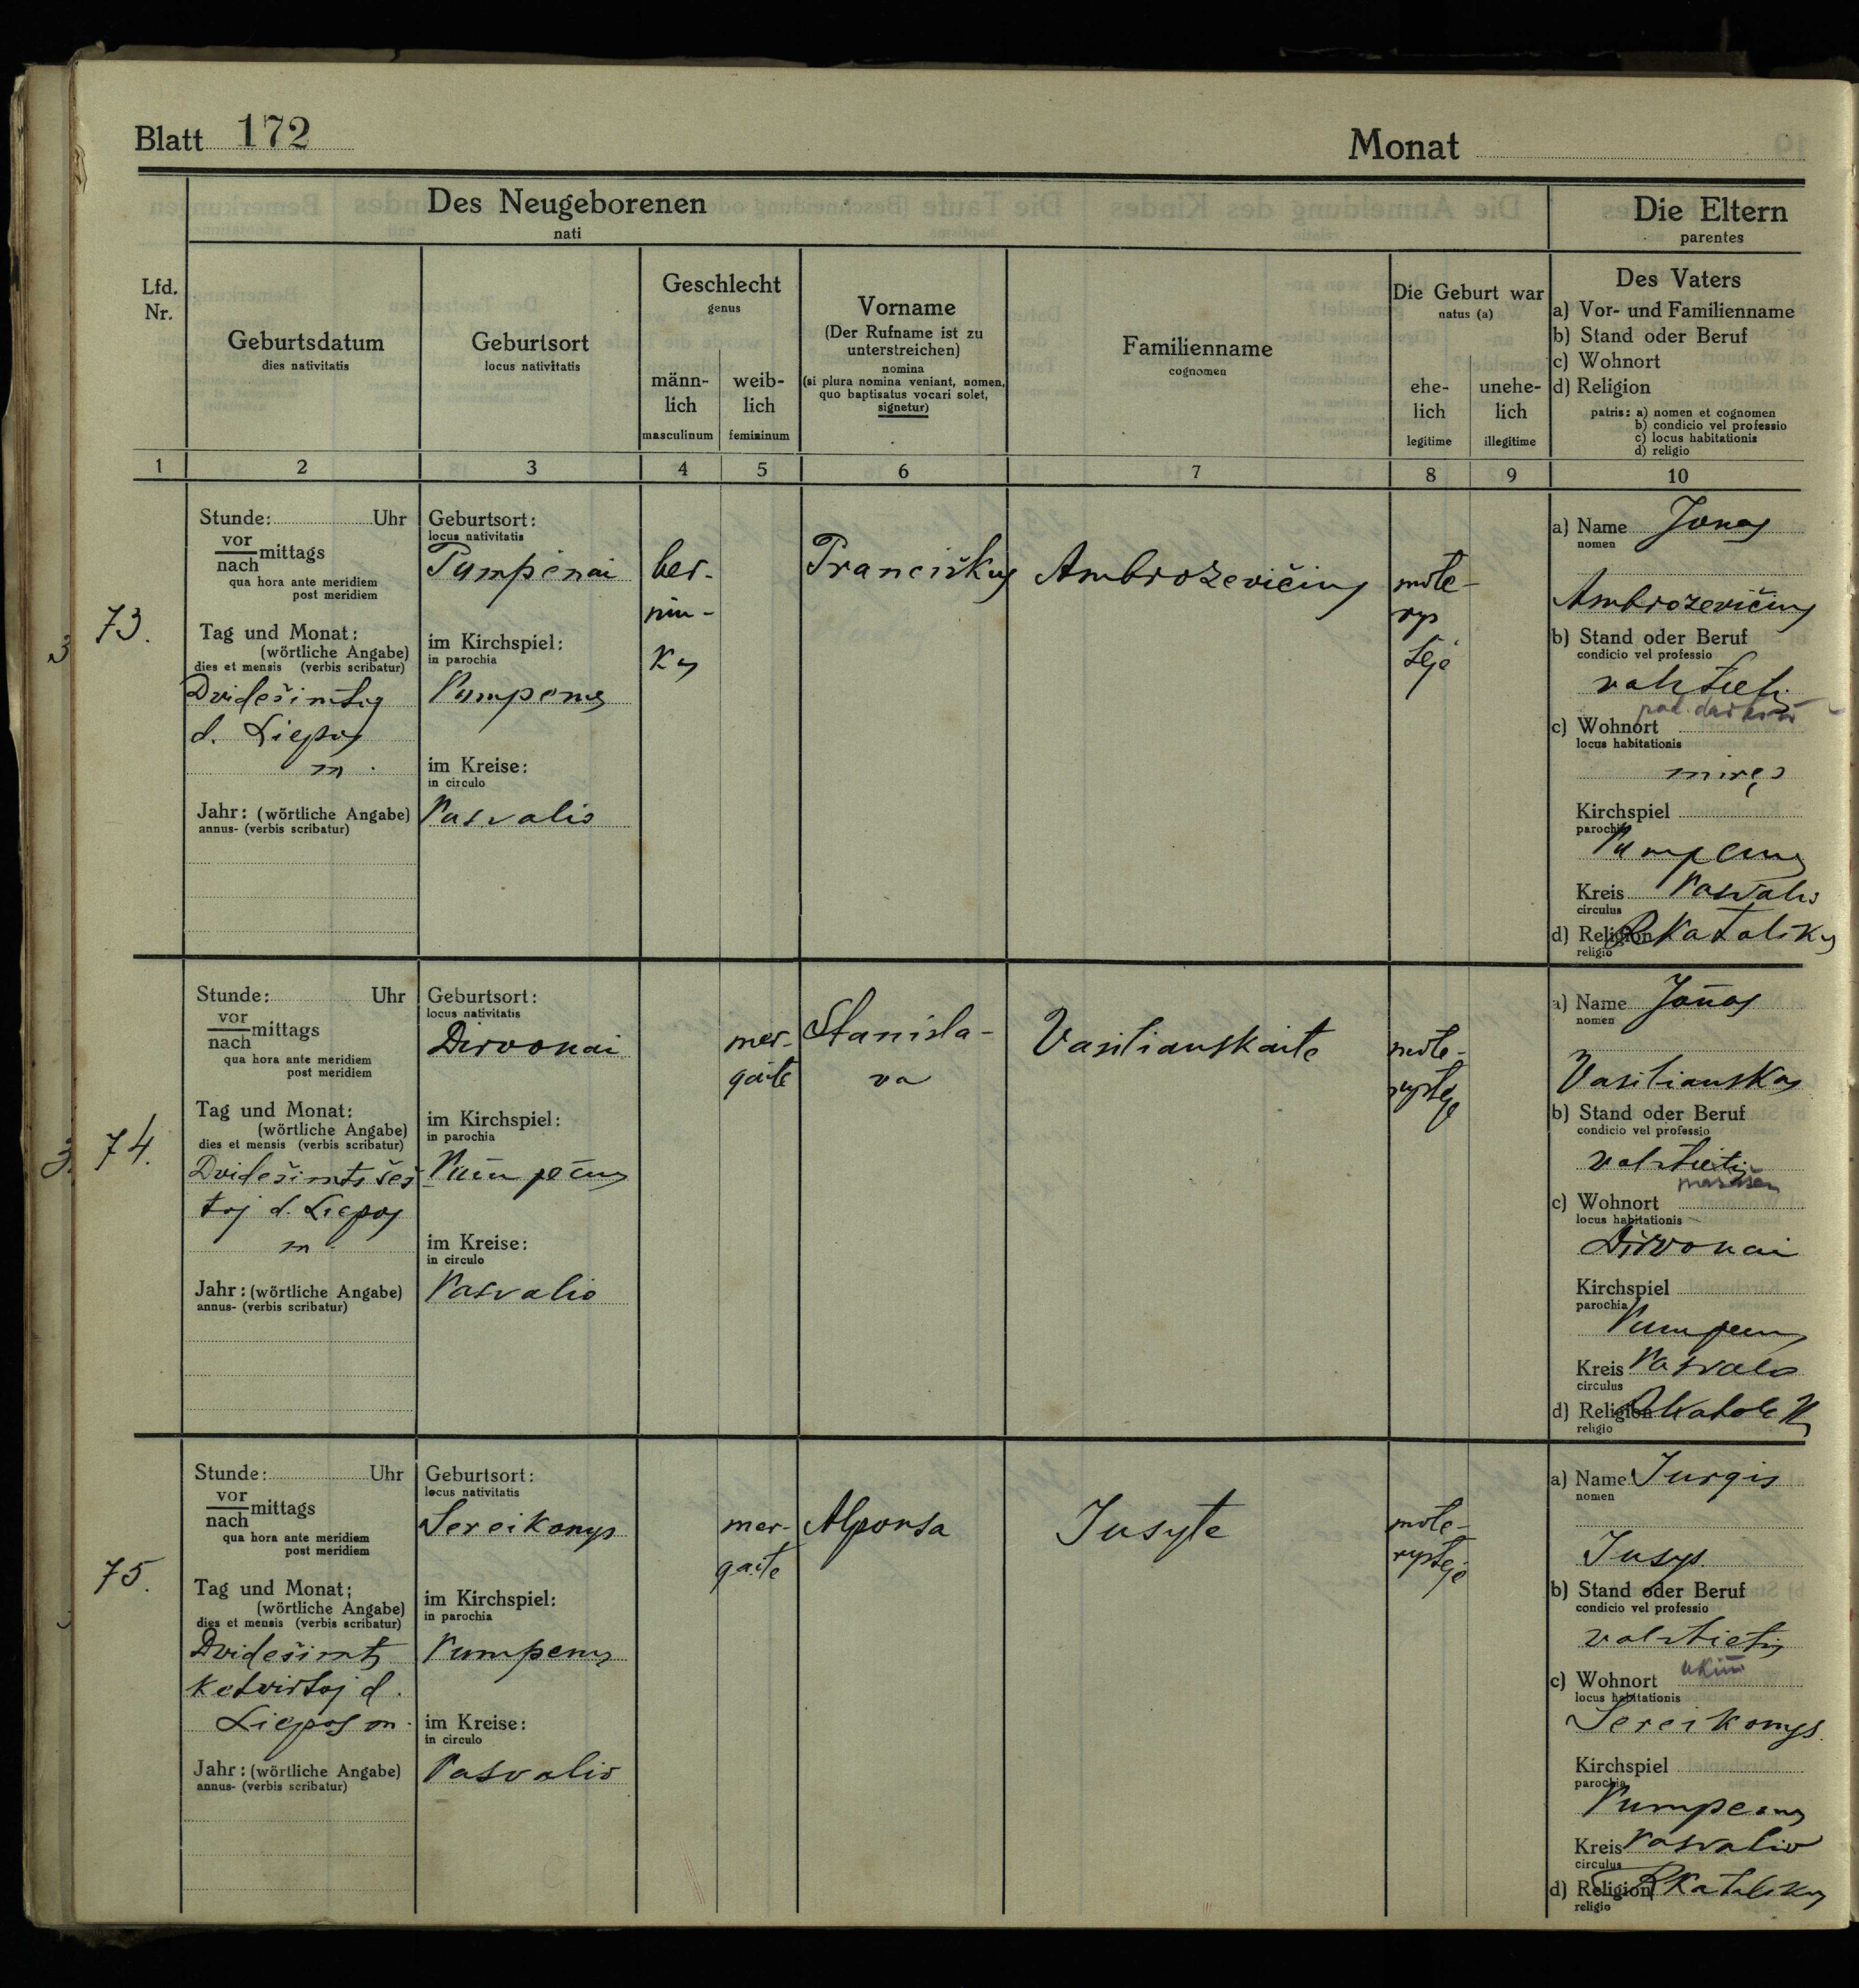 Blatt 172
Monat
Des Neugeborenen
nati
Die Eltern
parentes
Lfd. Nr.
Geburtsdatum
dies nativitatis
Geburtsort
locus nativitatis
Geschlecht
genus
männ-
lich
masculinum
weib-
lich
femininum
Vorname
(Der Rufname ist zu
unterstreichen)
nomina
(si plura nomina veniant, nomen,
quo baptisatus vocari solet,
signetur)
Familienname
cognomen
Die Geburt war
natus (a)
ehe-
lich
legitime
unehe-
lich
illegitime
Des Vaters
a) Vor- und Familienname
b) Stand oder Beruf
c) Wohnort
d) Religion
patris: a) nomen et cognomen
b) condicio vel professio
c) locus habitationis
d) religio
1 2 3 4 5 6 7 8 9 10
73.
Stunde: Uhr
vor
nach mittags
qua hora ante meridiem
post meridiem
Tag und Monat:
(wörtliche Angabe)
dies et mensis (verbis scribatur)
Dvidešimtig
d. Liepos
m.
Jahr: (wörtliche Angabe)
annus- (verbis scribatur)
Geburtsort:
locus nativitatis
Pumpėnai
im Kirchspiel:
in parochia
Pumpėnų
im Kreise:
in circulo
Pasvalio
ber-
niu-
kas
Pranciškus
Ambrozevičius
mote-
rys
tėje
a) Name Jonas
nomen
Ambrozevičius
b) Stand oder Beruf
condicio vel professio
valstietis
c) Wohnort
locus habitationis
Kirchspiel
parochia
Pumpėnų
Kreis Pasvalio
circulus
d) Religion R Katalikas
religio
74.
Stunde: Uhr
vor
nach mittags
qua hora ante meridiem
post meridiem
Tag und Monat:
(wörtliche Angabe)
dies et mensis (verbis scribatur)
Dvidešimts šeš
toj d. Liepos
m.
Jahr: (wörtliche Angabe)
annus- (verbis scribatur)
Geburtsort:
locus nativitatis
Dirvonai
im Kirchspiel:
in parochia
Pumpėnų
im Kreise:
in circulo
Pasvalio
mer-
gaite
Stanisla-
va
Vasiliauskaite
mote-
rystėje
a) Name Jonas
nomen
Vasiliauskas
b) Stand oder Beruf
condicio vel professio
valstietis
c) Wohnort
locus habitationis
Dirvonai
Kirchspiel
parochia
Pumpėnų
Kreis Pasvalio
circulus
d) Religion R Katalikas
religio
75.
Stunde: Uhr
vor
nach mittags
qua hora ante meridiem
post meridiem
Tag und Monat:
(wörtliche Angabe)
dies et mensis (verbis scribatur)
Dvidešimts
ketvirtoj d.
Liepos m.
Jahr: (wörtliche Angabe)
annus- (verbis scribatur)
Geburtsort:
locus nativitatis
Sereikonys
im Kirchspiel:
in parochia
Pumpenų
im Kreise:
in circulo
Pasvalio
mer-
gaite
Alponsa
Jusyte
mote-
rystėje
a) Name Jurgis
nomen
Jusys.
b) Stand oder Beruf
condicio vel professio
valstietis
c) Wohnort
locus habitationis
Sereikonys.
Kirchspiel
parochia
Pumpenų
Kreis Pasvalio
circulus
d) Religion R Katalikas
religio